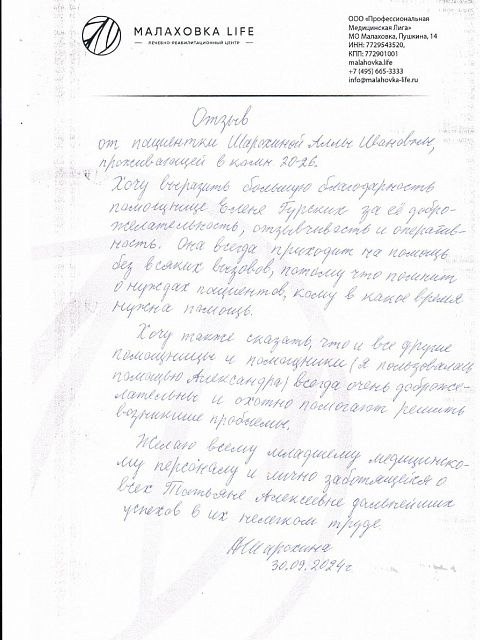 МАЛАХОВКА LIFE
ЛЕЧЕБНО-РЕАБИЛИТАЦИОННЫЙ ЦЕНТР
ООО «Профессиональная
Медицинская Лига»
МО Малаховка, Пушкина, 14
ИНН: 7729543520,
КПП: 772901001
malahovka.life
+7 (495) 665-3333
info@malahovka-life.ru
Отзыв
от пациентки Шарохиной Аллы Ивановны,
проживающей в комн 20-26.
Хочу выразить большую благодарность
помощнице Елене Гурских за её добро-
желательность, отзывчивость и оператив-
ность. Она всегда приходит на помощь
без всяких вызовов, потому что помнит
о нуждах пациентов, кому в какое время
нужна помощь.
Хочу также сказать, что и все другие
помощницы и помощники (я пользовалась
помощью Александра) всегда очень доброже-
лательны и охотно помогают решить
возникшие проблемы.
Желаю всему младшему медицинско-
му персоналу и лично заботящейся о
всех Татьяне Алексеевне дальнейших
успехов в их нелегком труде.
АШарохина
30.09.2024г